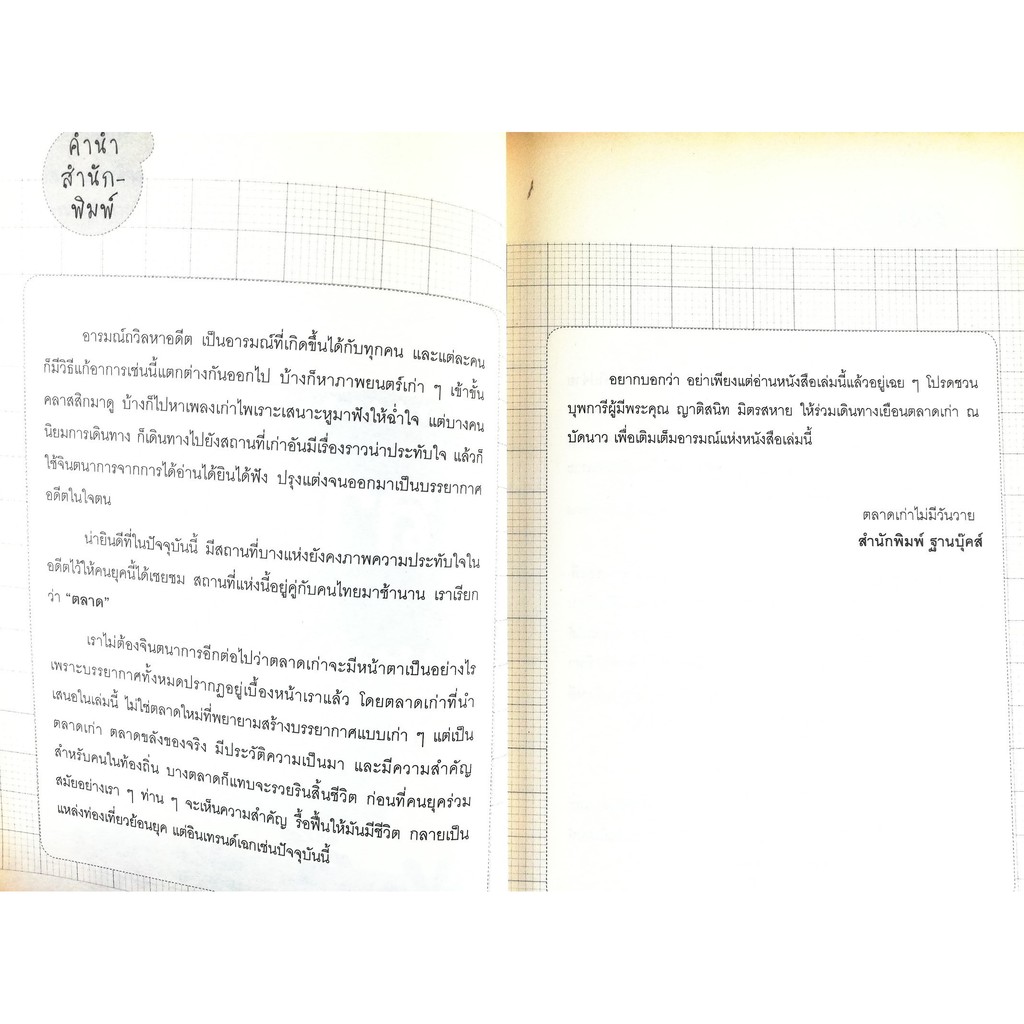 คำนำ
สำนัก-
พิมพ์
อารมณ์ถวิลหาอดีต เป็นอารมณ์ที่เกิดขึ้นได้กับทุกคน และแต่ละคน
ก็มีวิธีแก้อาการเช่นนี้แตกต่างกันออกไป บ้างก็หาภาพยนตร์เก่า ๆ เข้าขั้น
คลาสสิกมาดู บ้างก็ไปหาเพลงเก่าไพเราะเสนาะหูมาฟังให้ฉ่ำใจ แต่บางคน
นิยมการเดินทาง ก็เดินทางไปยังสถานที่เก่าอันมีเรื่องราวน่าประทับใจ แล้วก็
ใช้จินตนาการจากการได้อ่านได้ยินได้ฟัง ปรุงแต่งจนออกมาเป็นบรรยากาศ
อดีตในใจตน
น่ายินดีที่ในปัจจุบันนี้ มีสถานที่บางแห่งยังคงภาพความประทับใจใน
อดีตไว้ให้คนยุคนี้ได้เชยชม สถานที่แห่งนี้อยู่คู่กับคนไทยมาช้านาน เราเรียก
ว่า “ตลาด”
เราไม่ต้องจินตนาการอีกต่อไปว่าตลาดเก่าจะมีหน้าตาเป็นอย่างไร
เพราะบรรยากาศทั้งหมดปรากฏอยู่เบื้องหน้าเราแล้ว โดยตลาดเก่าที่นำ
เสนอในเล่มนี้ ไม่ใช่ตลาดใหม่ที่พยายามสร้างบรรยากาศแบบเก่า ๆ แต่เป็น
ตลาดเก่า ตลาดขลังของจริง มีประวัติความเป็นมา และมีความสำคัญ
สำหรับคนในท้องถิ่น บางตลาดก็แทบจะรวยรินสิ้นชีวิต ก่อนที่คนยุคร่วม
สมัยอย่างเรา ๆ ท่าน ๆ จะเห็นความสำคัญ รื้อฟื้นให้มันมีชีวิต กลายเป็น
แหล่งท่องเที่ยวย้อนยุค แต่อินเทรนด์เฉกเช่นปัจจุบันนี้
อยากบอกว่า อย่าเพียงแต่อ่านหนังสือเล่มนี้แล้วอยู่เฉย ๆ โปรดชวน
บุพการีผู้มีพระคุณ ญาติสนิท มิตรสหาย ให้ร่วมเดินทางเยือนตลาดเก่า ณ
บัดนาว เพื่อเติมเต็มอารมณ์แห่งหนังสือเล่มนี้
ตลาดเก่าไม่มีวันวาย
สำนักพิมพ์ ฐานบุ๊คส์